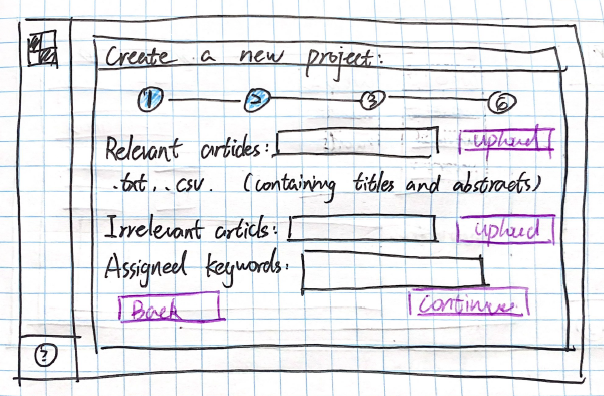 Create a new project:
1 2 3 6
Relevant articles: upload
.txt, .csv. (containing titles and abstracts)
Irrelevant articls: upload
Assigned keywords:
Back continue
?